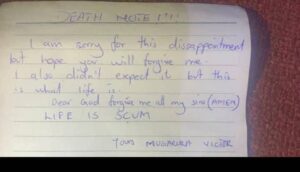 DEATH NOTE!!!
I am sorry for this dissappointment
but hope you will forgive me.
I also didn't expect it but this
is what life is.
Dear God forgive me all my sins (AMEN)
LIFE IS SCUM
YOURS MUGARURA VICTOR